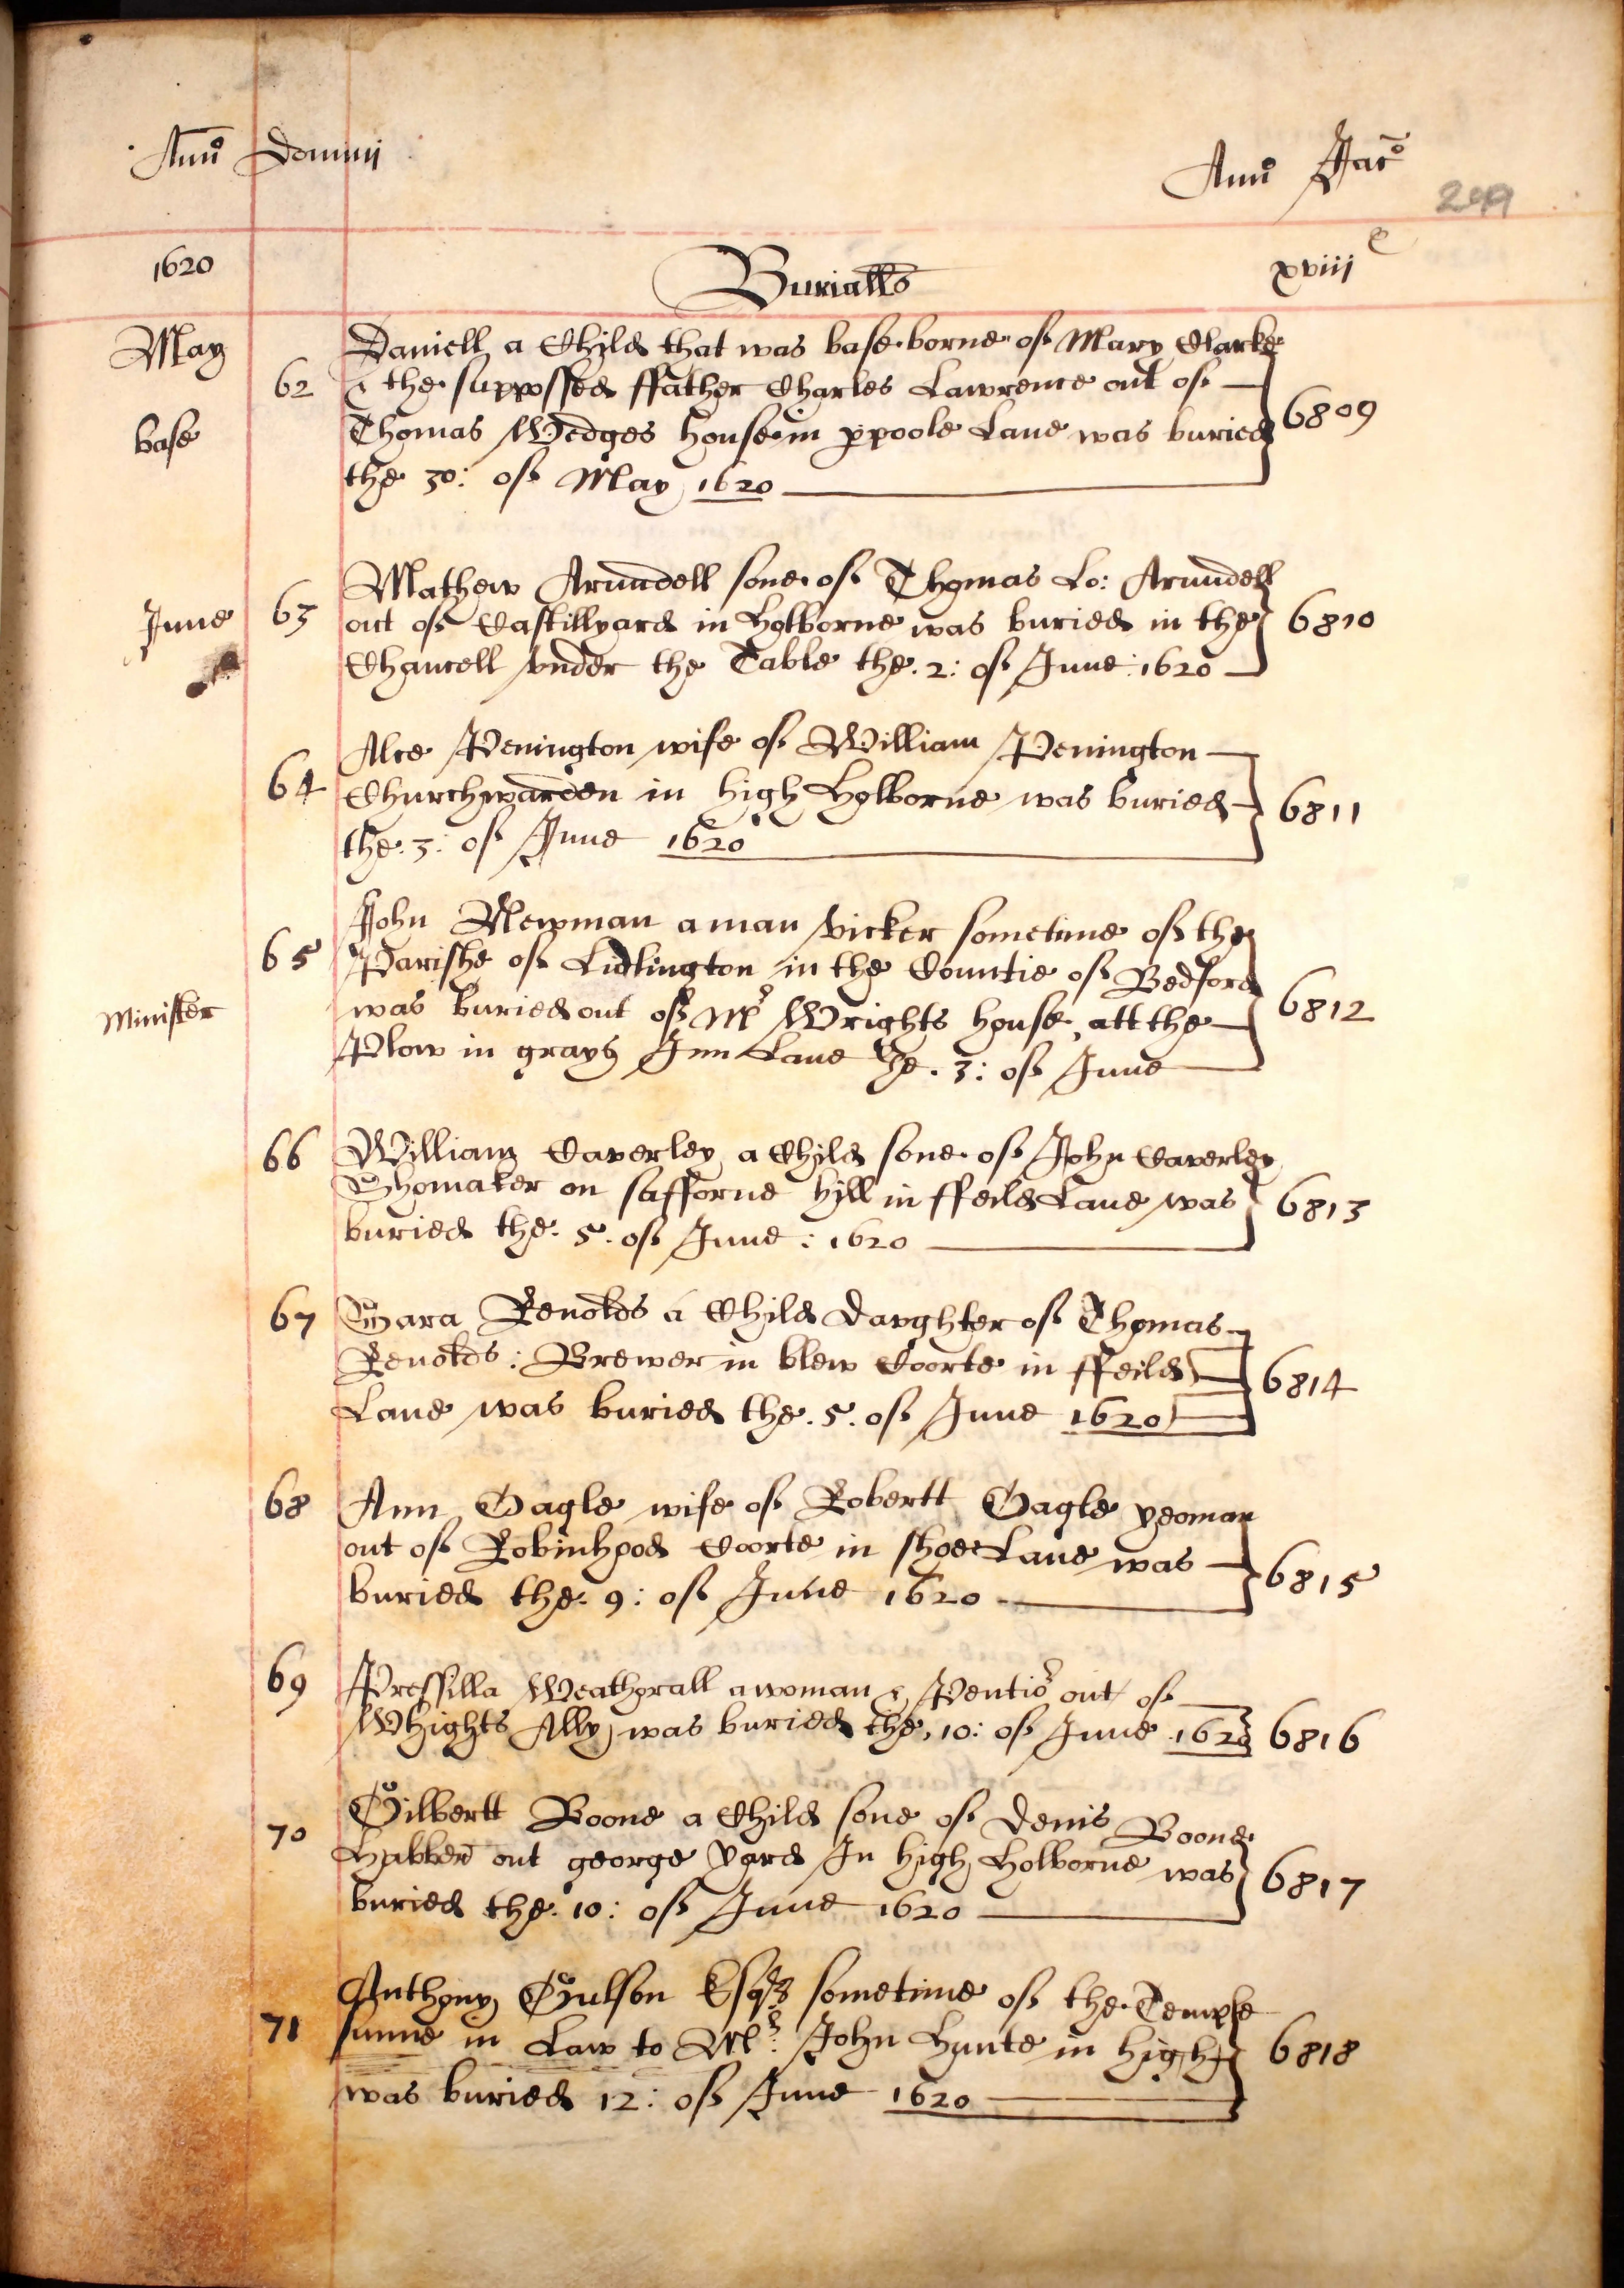 Anno Domini
Anno Jaco
249
1620 Burialls xviij e
May
base
62 Daniell a Child that was base borne of Mary Clarke
& the suppossed ffather Charles Lawrence out of
Thomas Wedges house in ppoole Lane was buried
the 30: of May 1620
6809
June
63 Mathew Arundell sone of Thomas Lo: Arundell
out of Castillyard in Holborne was buried in the
Chancell vnder the Table the .2: of June : 1620
6810
64 Alce Penington wife of William Penington
Churchwarden in high Holborne was buried
the .3: of June 1620
6811
Minister
65 John Newman a man vicker sometime of the
Parishe of Lidlington in the Countie of Bedford
was buried out of Mr Wrights house att the
Plow in grays Inn Lane the .3: of June
6812
66 William Caverley a Child sone of John Caverley
Shomaker on safforne hill in ffeild Lane was
buried the .5. of June : 1620
6813
67 Sara Renolds a Child Daughter of Thomas
Renolds : Brewer in blew Coorte in ffeild
Lane was buried the .5. of June 1620
6814
68 Ann Gagle wife of Robertt Gagle yeoman
out of Robinhood Coorte in shoe Lane was
buried the .9: of June 1620
6815
69 Pressilla Weathgrall a woman & Pentior out of
Whights Ally was buried the .10: of June 1620
6816
70 Gilbertt Boone a Child sone of Denis Boone
Habber out george yard In high Holborne was
buried the .10: of June 1620
6817
71 Anthony Gulson Esqr sometime of the Temple
sunne in Law to Mr John Hunte in high
was buried 12: of June 1620
6818